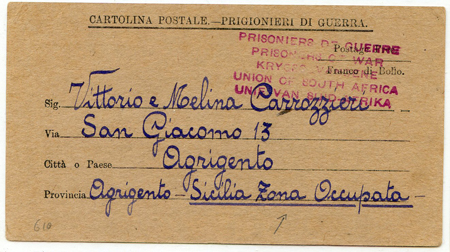 CARTOLINA POSTALE.—PRIGIONIERI DI GUERRA.
PRISONIERS DE GUERRE
Postage Free
PRISONERS OF WAR
KRYGSGEVANGENE
Franco di Bollo.
UNION OF SOUTH AFRICA
UNIE VAN SUID AFRIKA
Sig. Vittorio e Melina Carrozzieri
Via San Giacomo 13
Città o Paese Agrigento
Provincia Agrigento - Sicilia Zona Occupata -